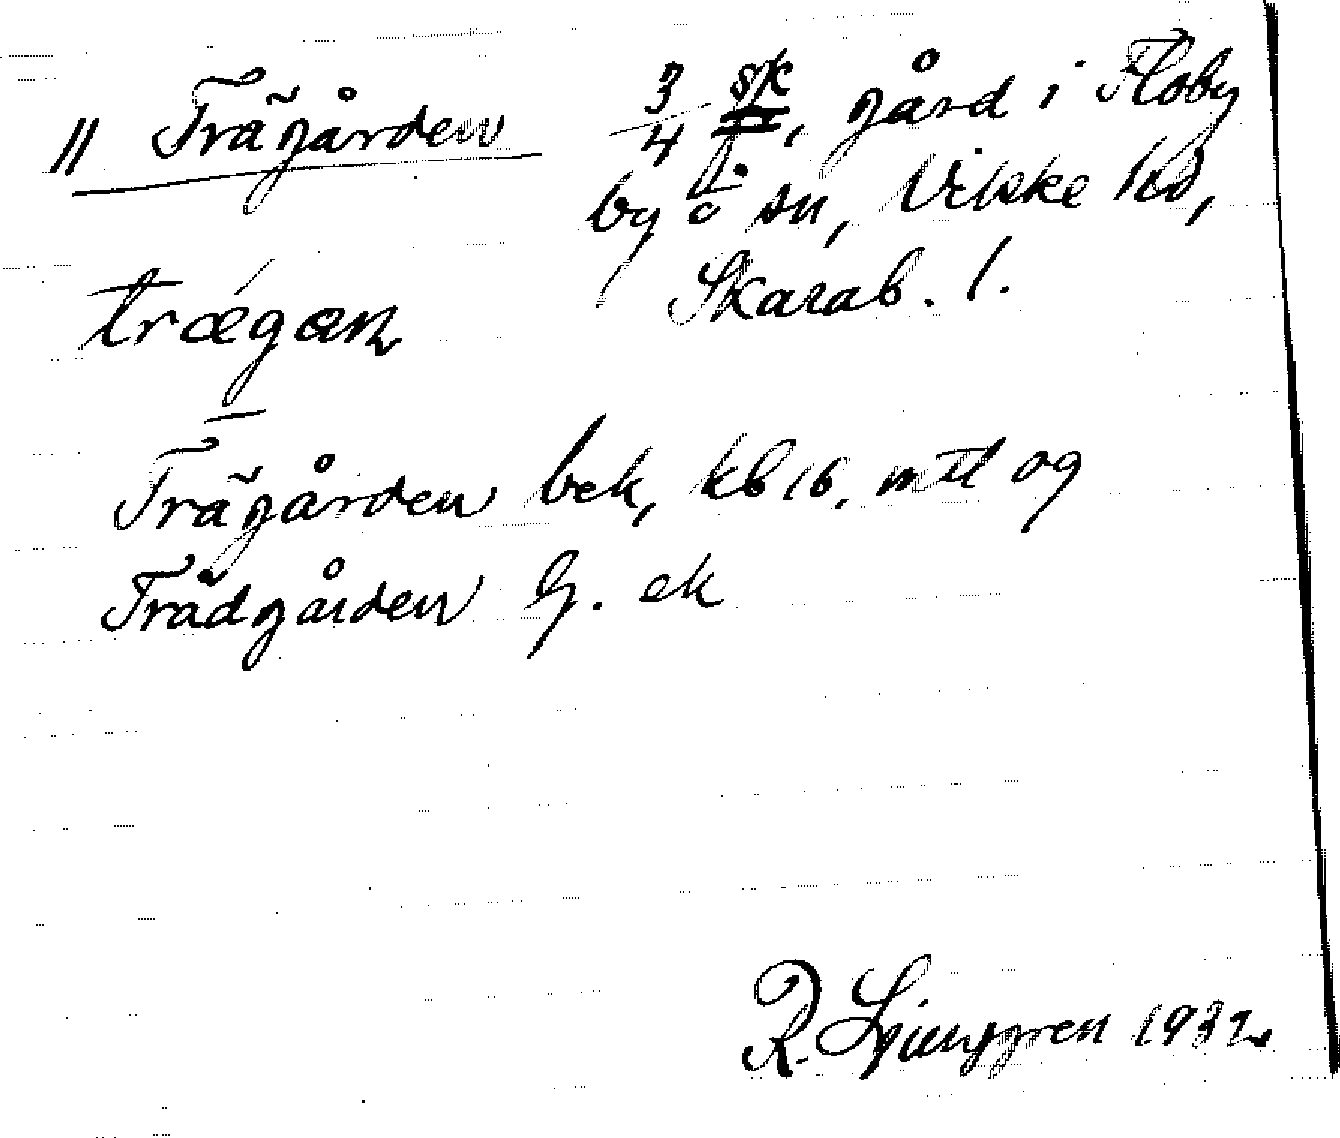 " Trägården 3/4 sk, gård i Floby
by o sn, Vilske hd,
Skarab. l.
trægæn
Trägården bek, kb 16, mtl og
Trädgården G. ek
R. Ljunggren 1932